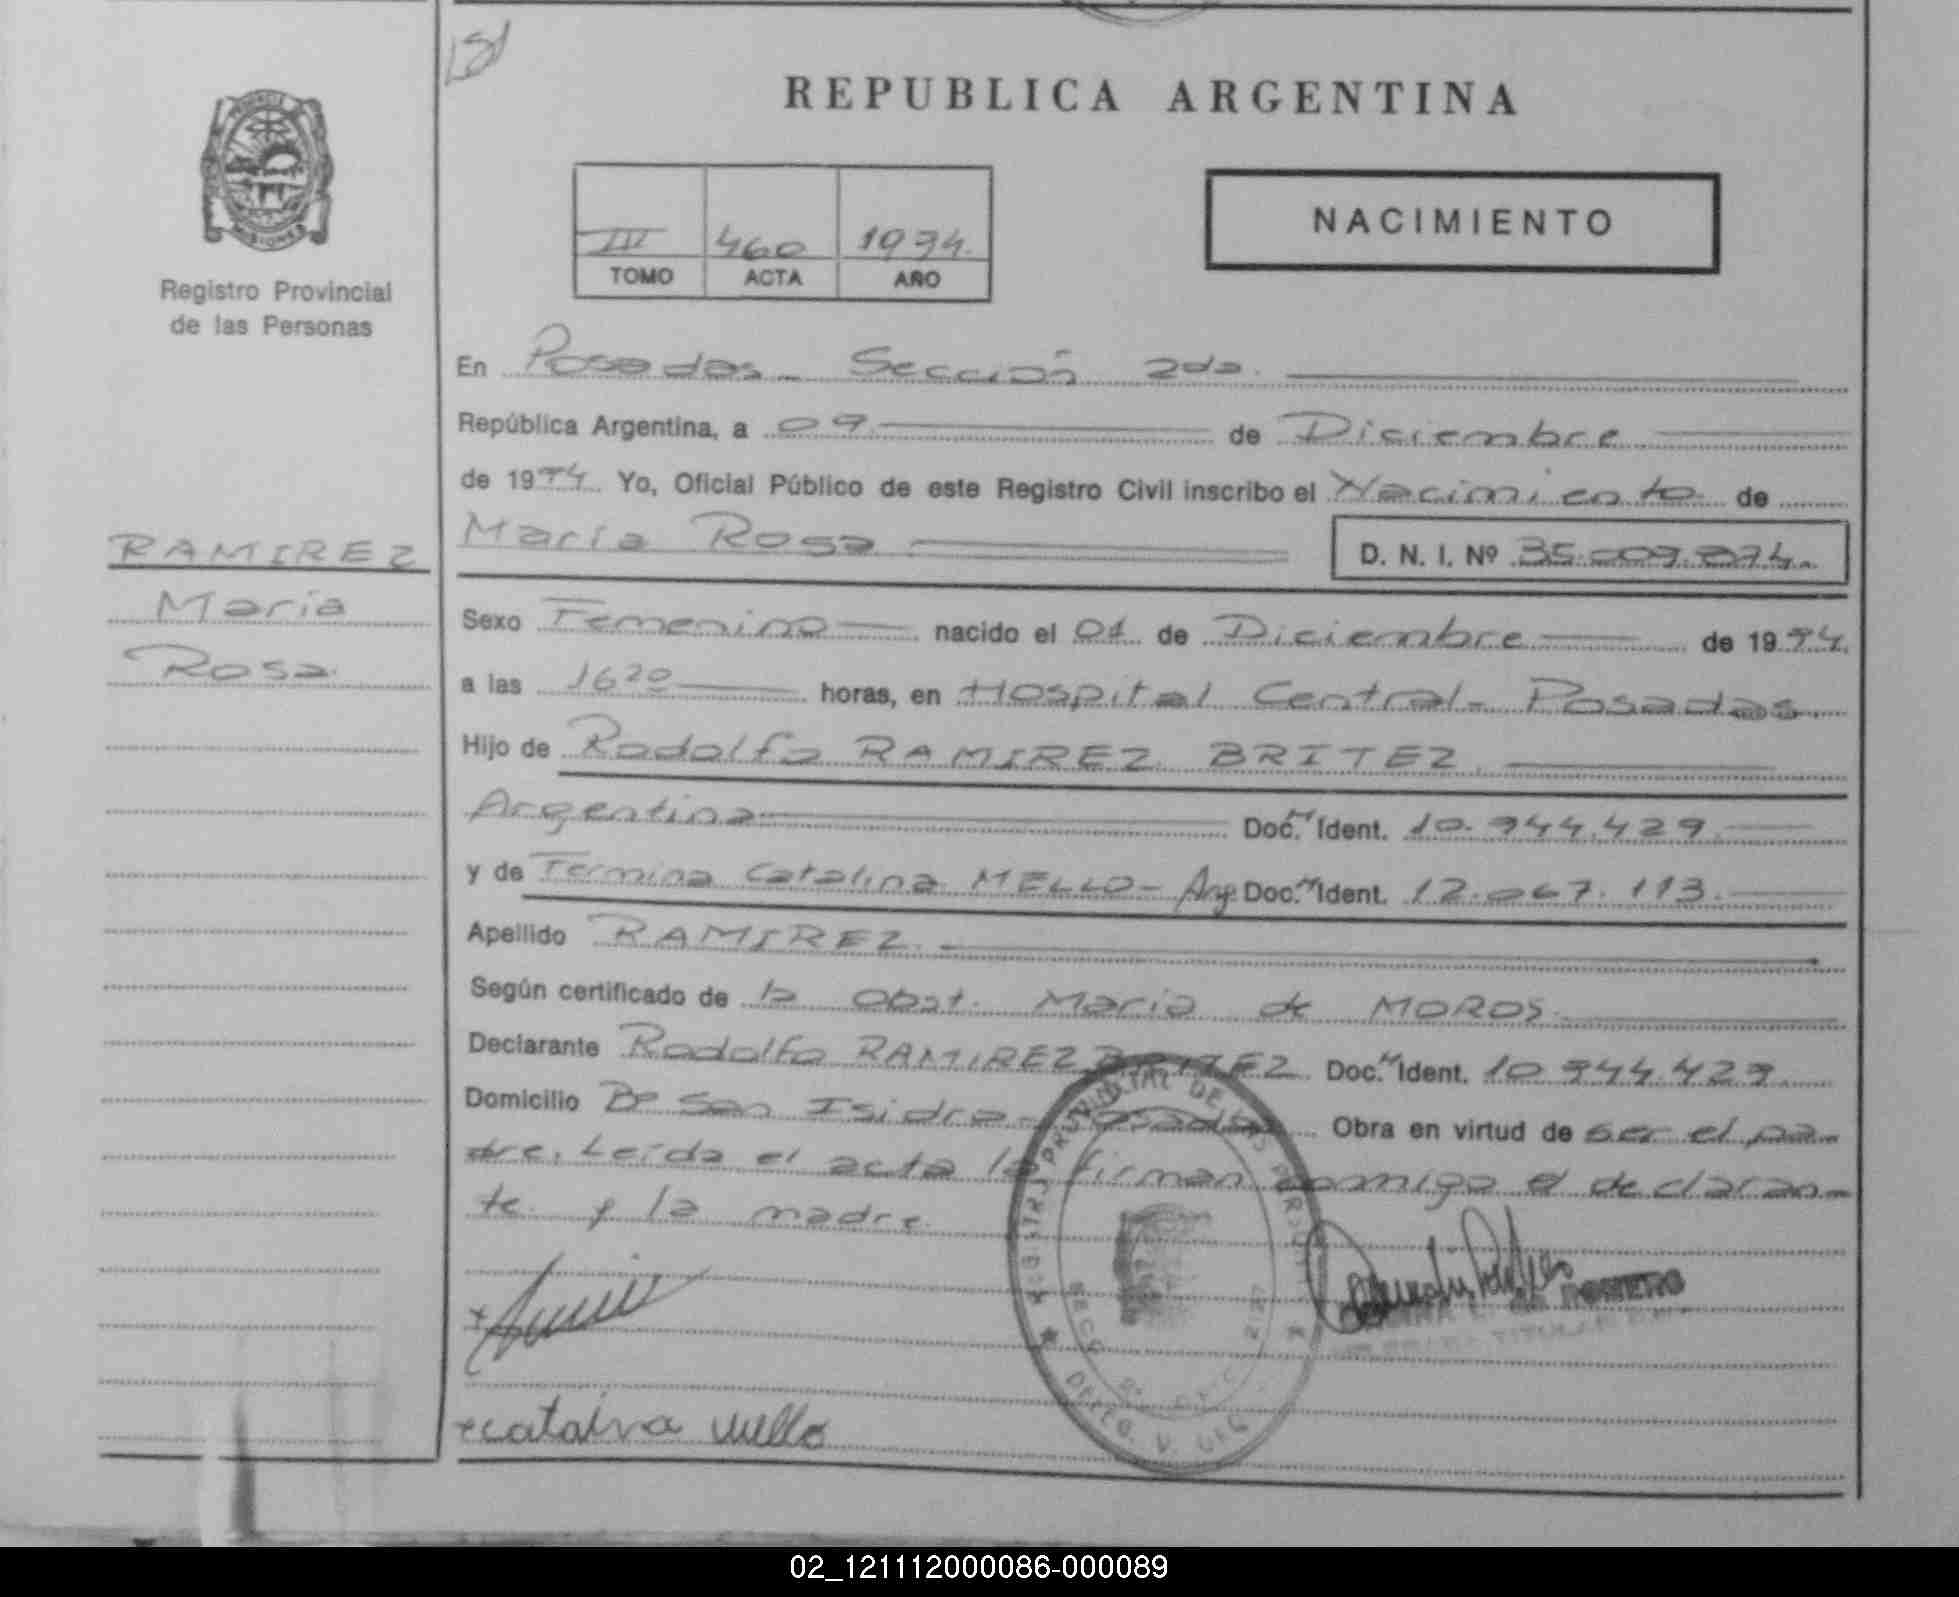 REPUBLICA ARGENTINA
PROVINCIA DE MISIONES
Registro Provincial
de las Personas
III 460 1994.
TOMO ACTA AÑO
NACIMIENTO
RAMIREZ
Maria
Rosa
En Posadas - Sección 2da.
República Argentina, a 09 de Diciembre
de 1994 Yo, Oficial Público de este Registro Civil inscribo el Nacimiento de
María Rosa D. N. I. Nº 35.009.874.
Sexo Femenino nacido el 01 de Diciembre de 1994.
a las 16 20 horas, en Hospital Central - Posadas
Hijo de Rodolfo RAMIREZ BRITEZ
Argentina Doc. Ident. 10.944.429.
y de Fermina Catalina MELLO - Arg. Doc. Ident. 12.067.113.
Apellido RAMIREZ
Según certificado de la Obst. Maria de MOROS.
Declarante Rodolfo RAMIREZ BRITEZ Doc. Ident. 10.944.429.
Domicilio Bº San Isidro - Posadas Obra en virtud de ser el pa-
dre. Leída el acta la firman conmigo el declaran-
te y la madre.
REGISTRO PROVINCIAL DE LAS PERSONAS
ROMERO
TITULAR
catalina mello
02_121112000086-000089